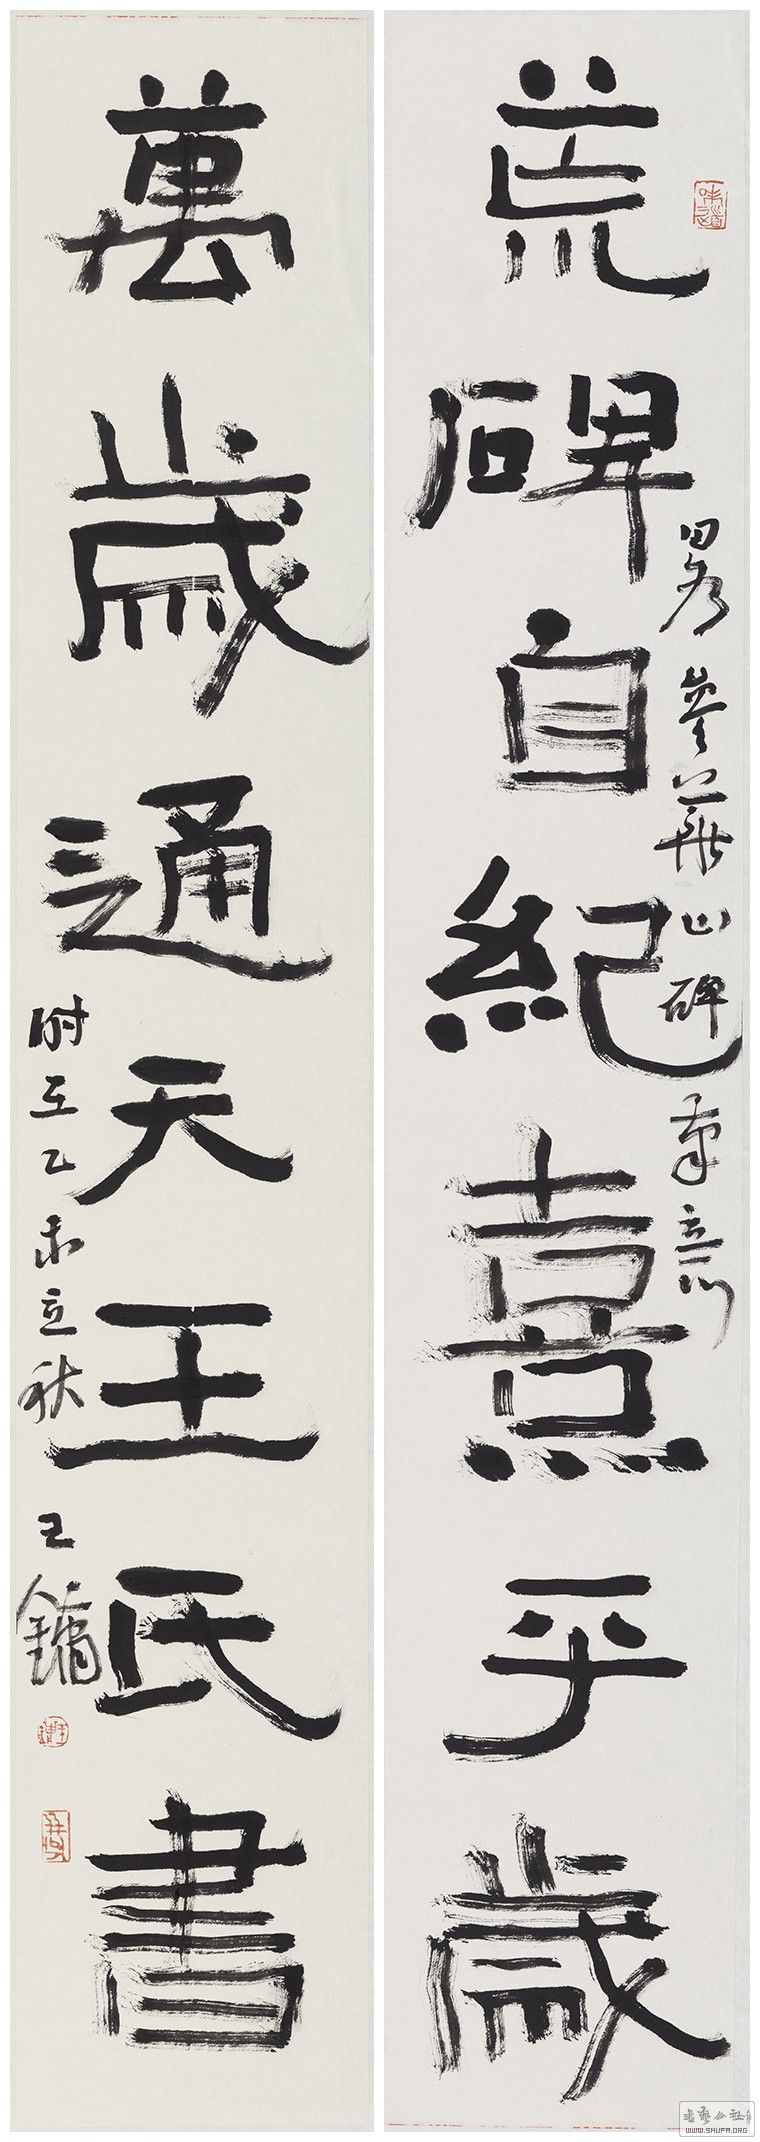 荒碑自紀熹平歲
畧參華山碑筆意
萬歲通天王氏書
時在乙未立秋
王鏞
書藝公社
WWW.SHUFA.ORG